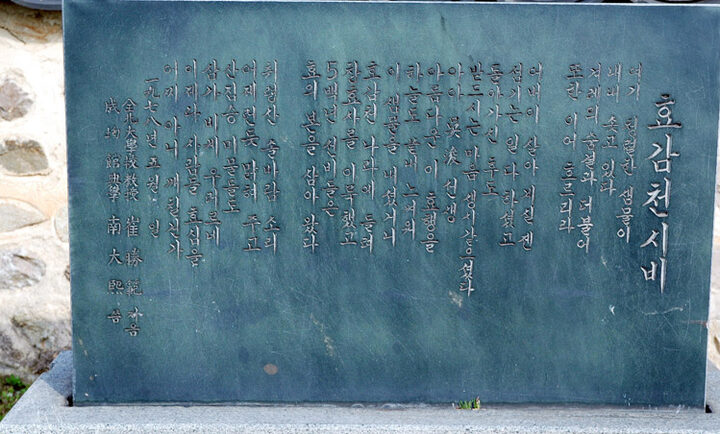 효감천시비
여기 청렬한 샘물이
내내 솟고 있다
겨레의 숨결과 더불어
또한 이어 흐르리라
어버이 살아 계실 젠
섬기는 일 다하셨고
돌아가신 후도
받드시는 마음 생시 같으셨다
아아 吳浚 선생
아름다운 이 효행을
하늘도 살펴
이 샘물을 내셨거니
효감천 나라에 들려
창효사를 이룩했고
5백년 선비들은
효의 본을 삼아 왔다
취령산 솔바람 소리
어제런듯 맑혀 주고
산짐승 미물들도
삼가 비켜
이제와 사람들 효심을
어찌 아니 깨칠손가
一九七八년 五월 일
全北大學校敎授 崔勝範 지음
成均館典學 南大熙 씀